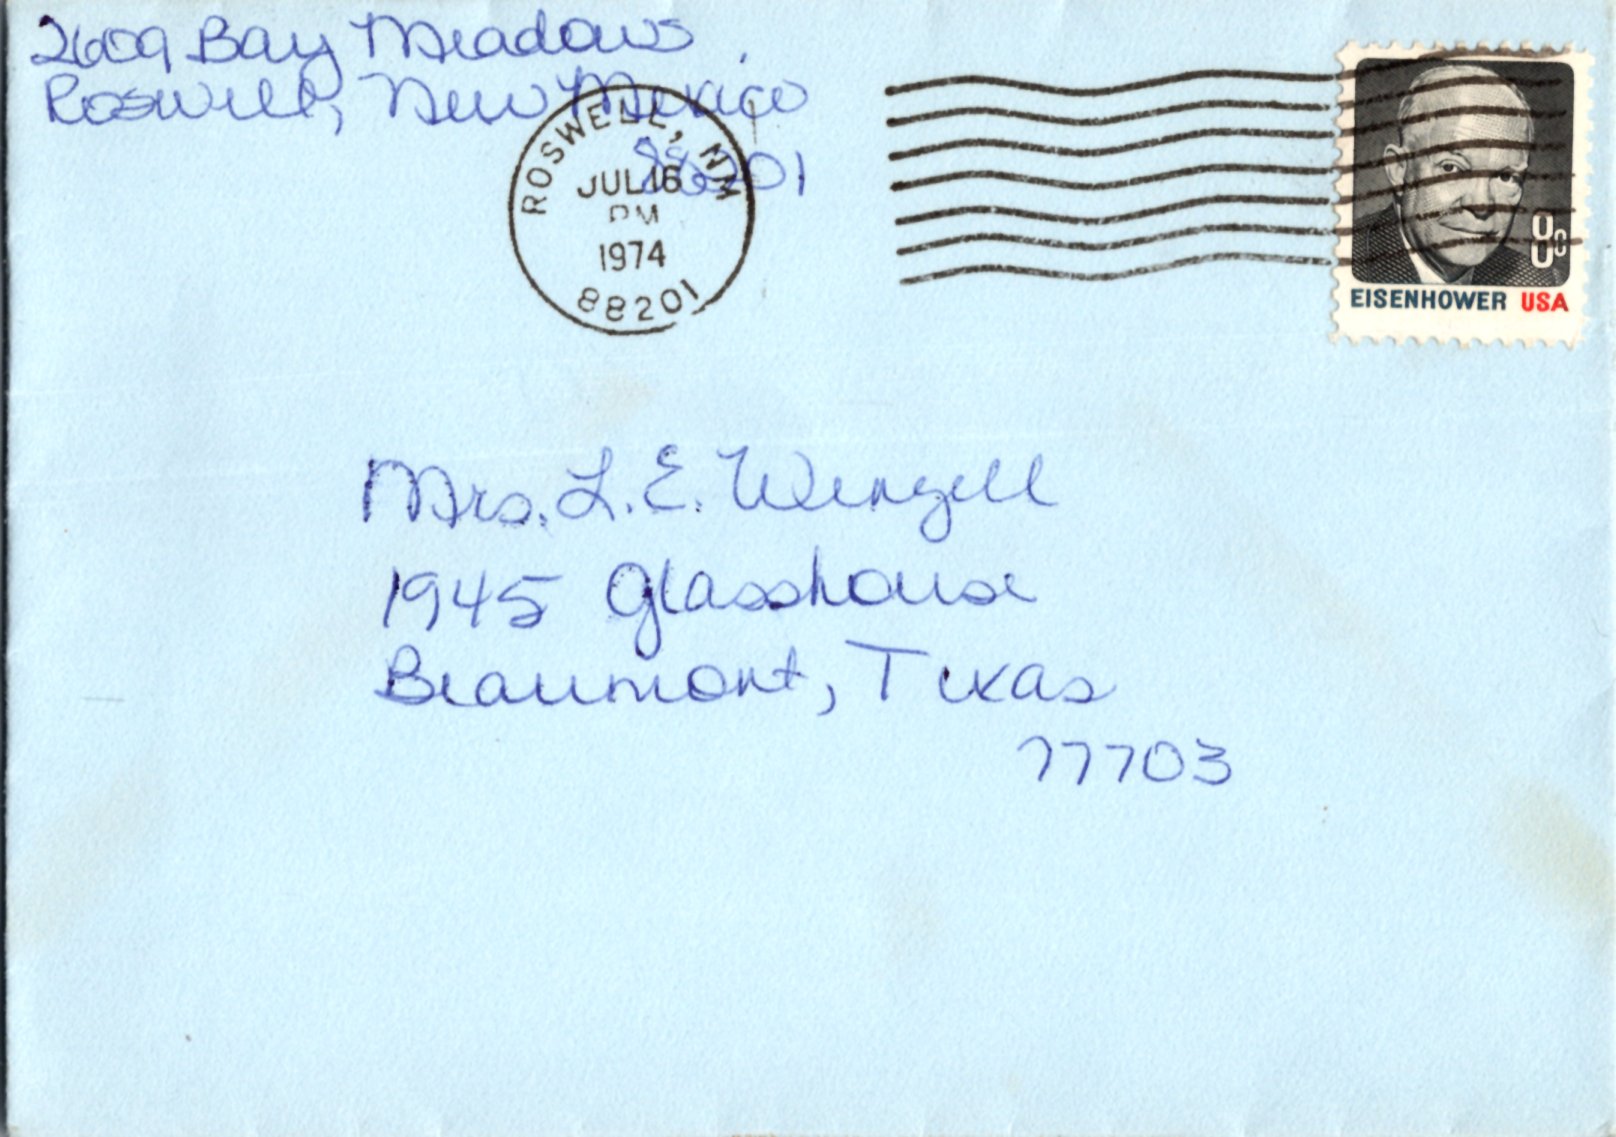 2609 Bay Meadows
Roswell, New Mexico
88201
ROSWELL, NM
JUL 16
PM
1974
88201
8c
EISENHOWER USA
Mrs. L. E. Wengell
1945 Glasshouse
Beaumont, Texas
77703